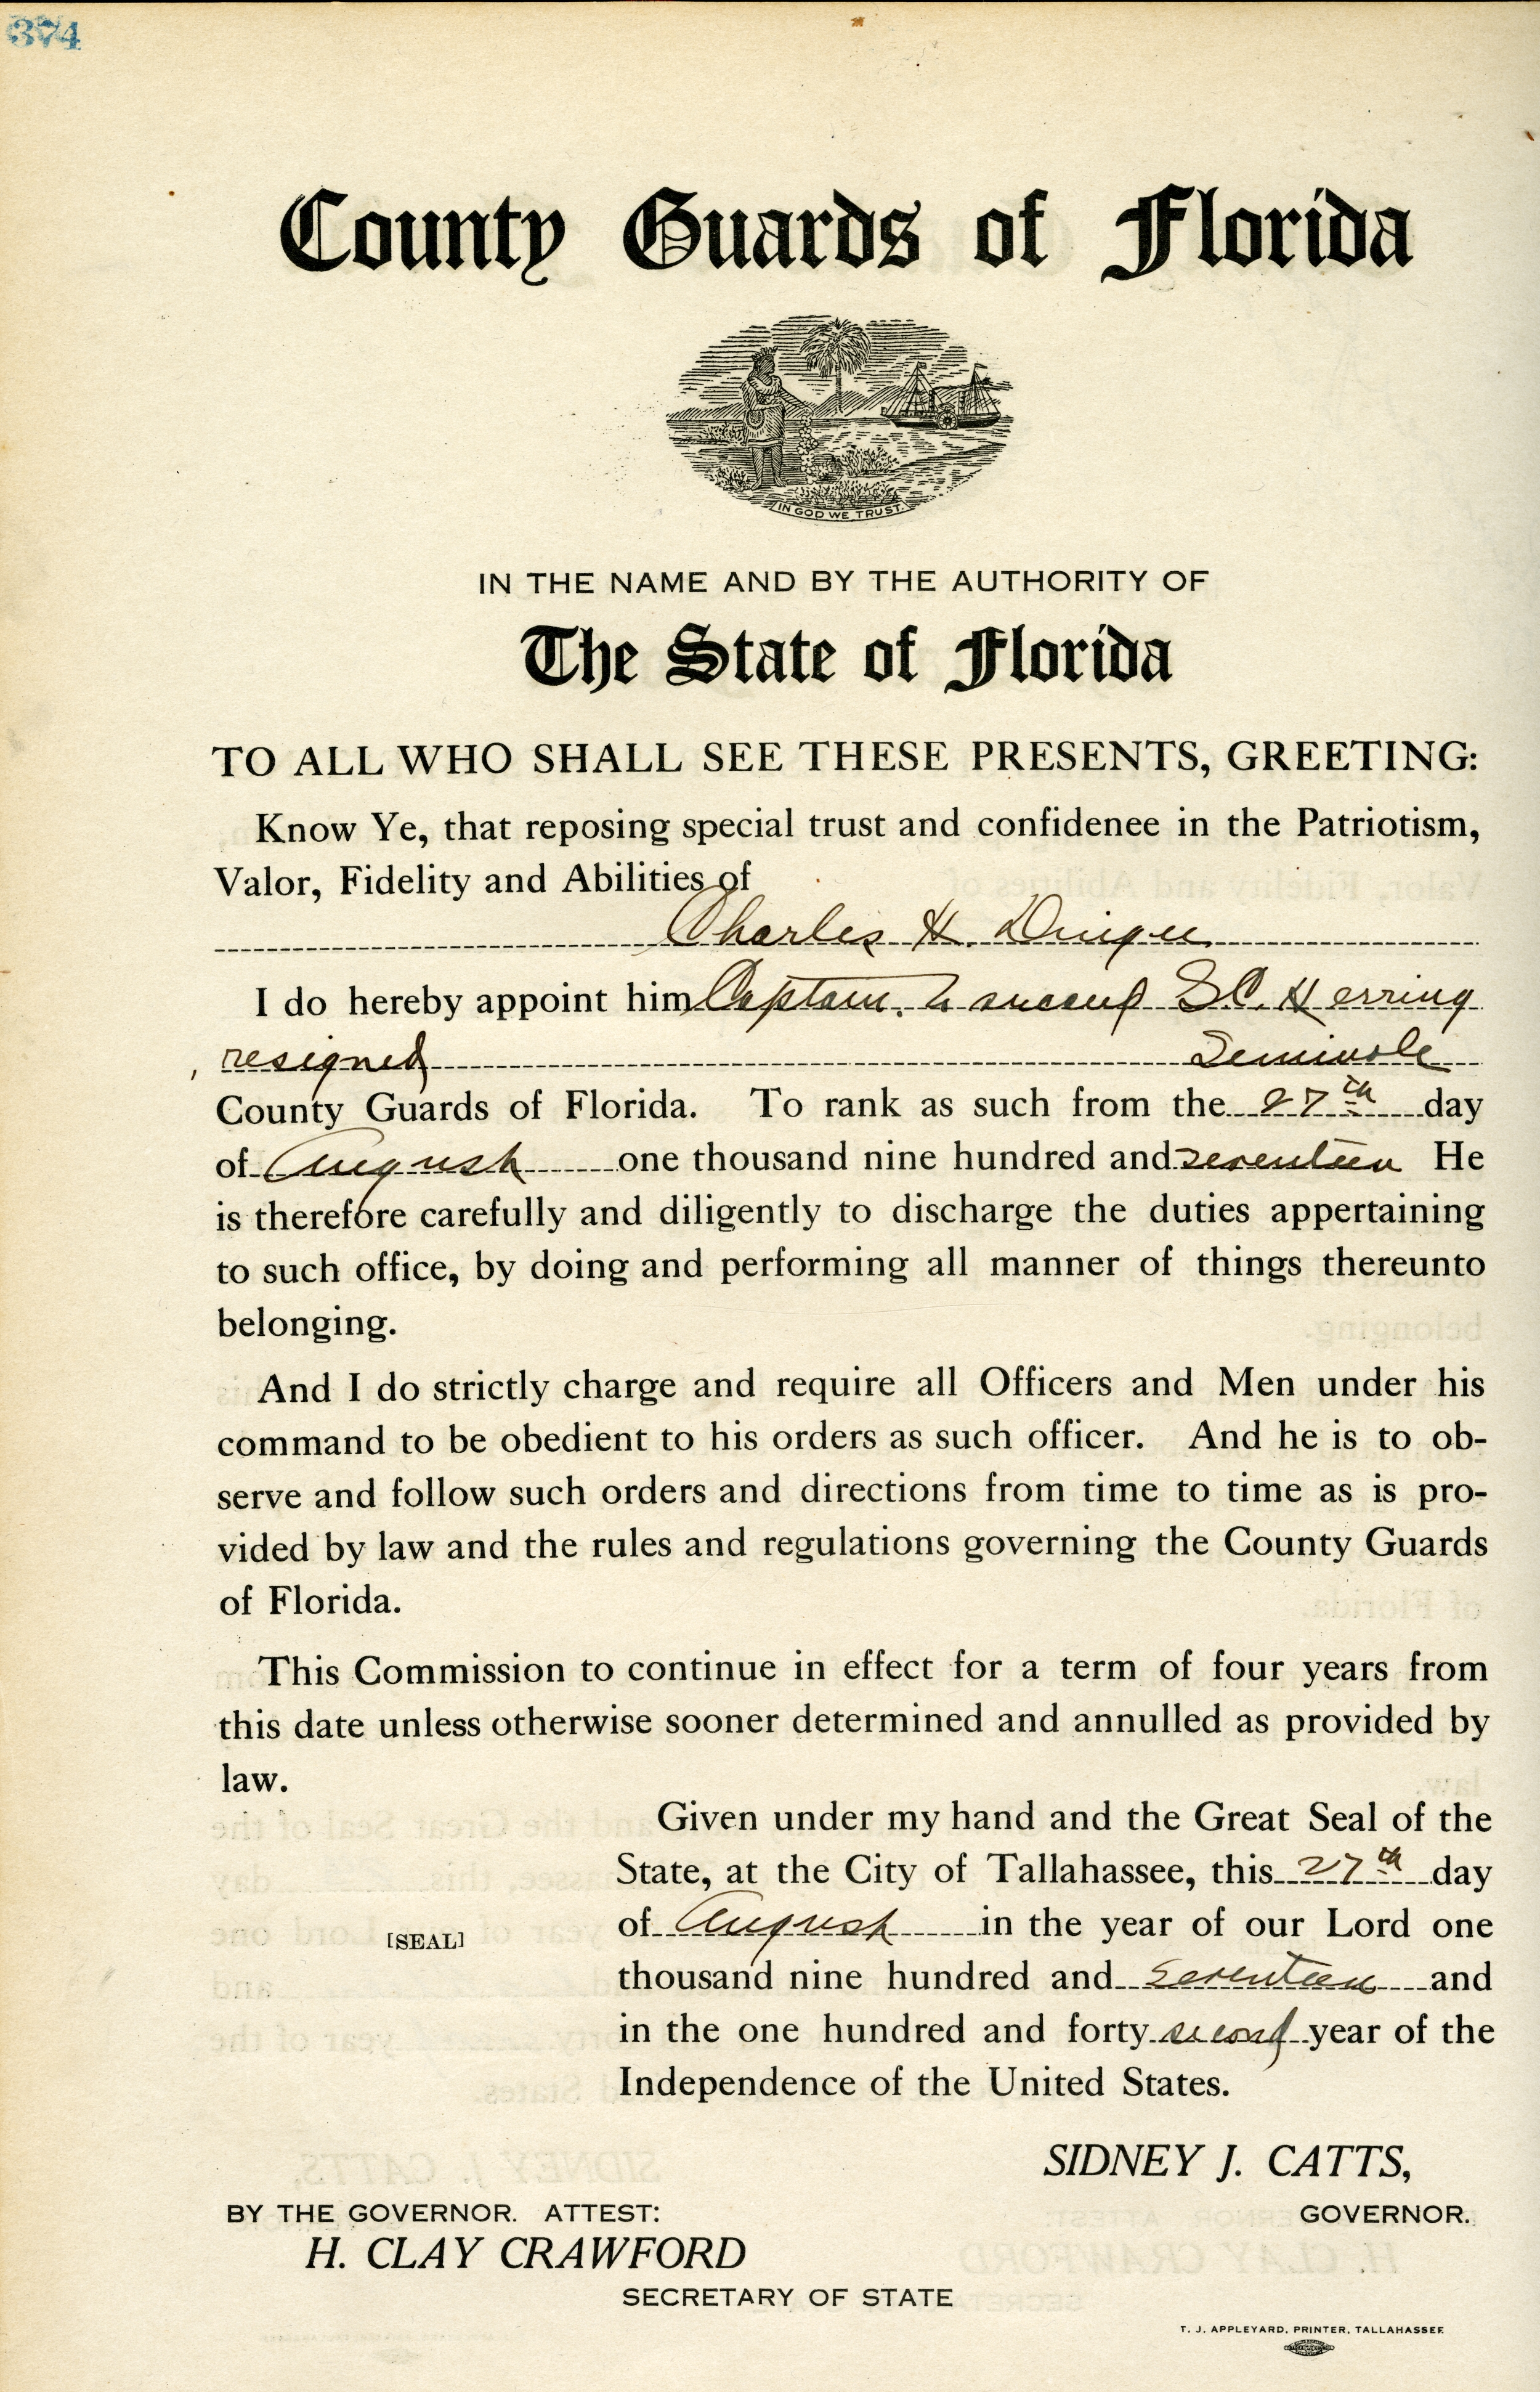 374
County Guards of Florida
IN GOD WE TRUST.
IN THE NAME AND BY THE AUTHORITY OF
The State of Florida
TO ALL WHO SHALL SEE THESE PRESENTS, GREETING:
Know Ye, that reposing special trust and confidenee in the Patriotism,
Valor, Fidelity and Abilities of
Charles H.
I do hereby appoint him Captain. to succeed S.C. Herring
resigned Seminole
County Guards of Florida. To rank as such from the 27th day
of August one thousand nine hundred and seventeen He
is therefore carefully and diligently to discharge the duties appertaining
to such office, by doing and performing all manner of things thereunto
belonging.
And I do strictly charge and require all Officers and Men under his
command to be obedient to his orders as such officer. And he is to ob-
serve and follow such orders and directions from time to time as is pro-
vided by law and the rules and regulations governing the County Guards
of Florida.
This Commission to continue in effect for a term of four years from
this date unless otherwise sooner determined and annulled as provided by
law.
Given under my hand and the Great Seal of the
State, at the City of Tallahassee, this 27th day
of August in the year of our Lord one
[SEAL]
thousand nine hundred and seventeen and
in the one hundred and forty second year of the
Independence of the United States.
SIDNEY J. CATTS,
BY THE GOVERNOR. ATTEST: GOVERNOR.
H. CLAY CRAWFORD
SECRETARY OF STATE
T. J. APPLEYARD, PRINTER, TALLAHASSEE